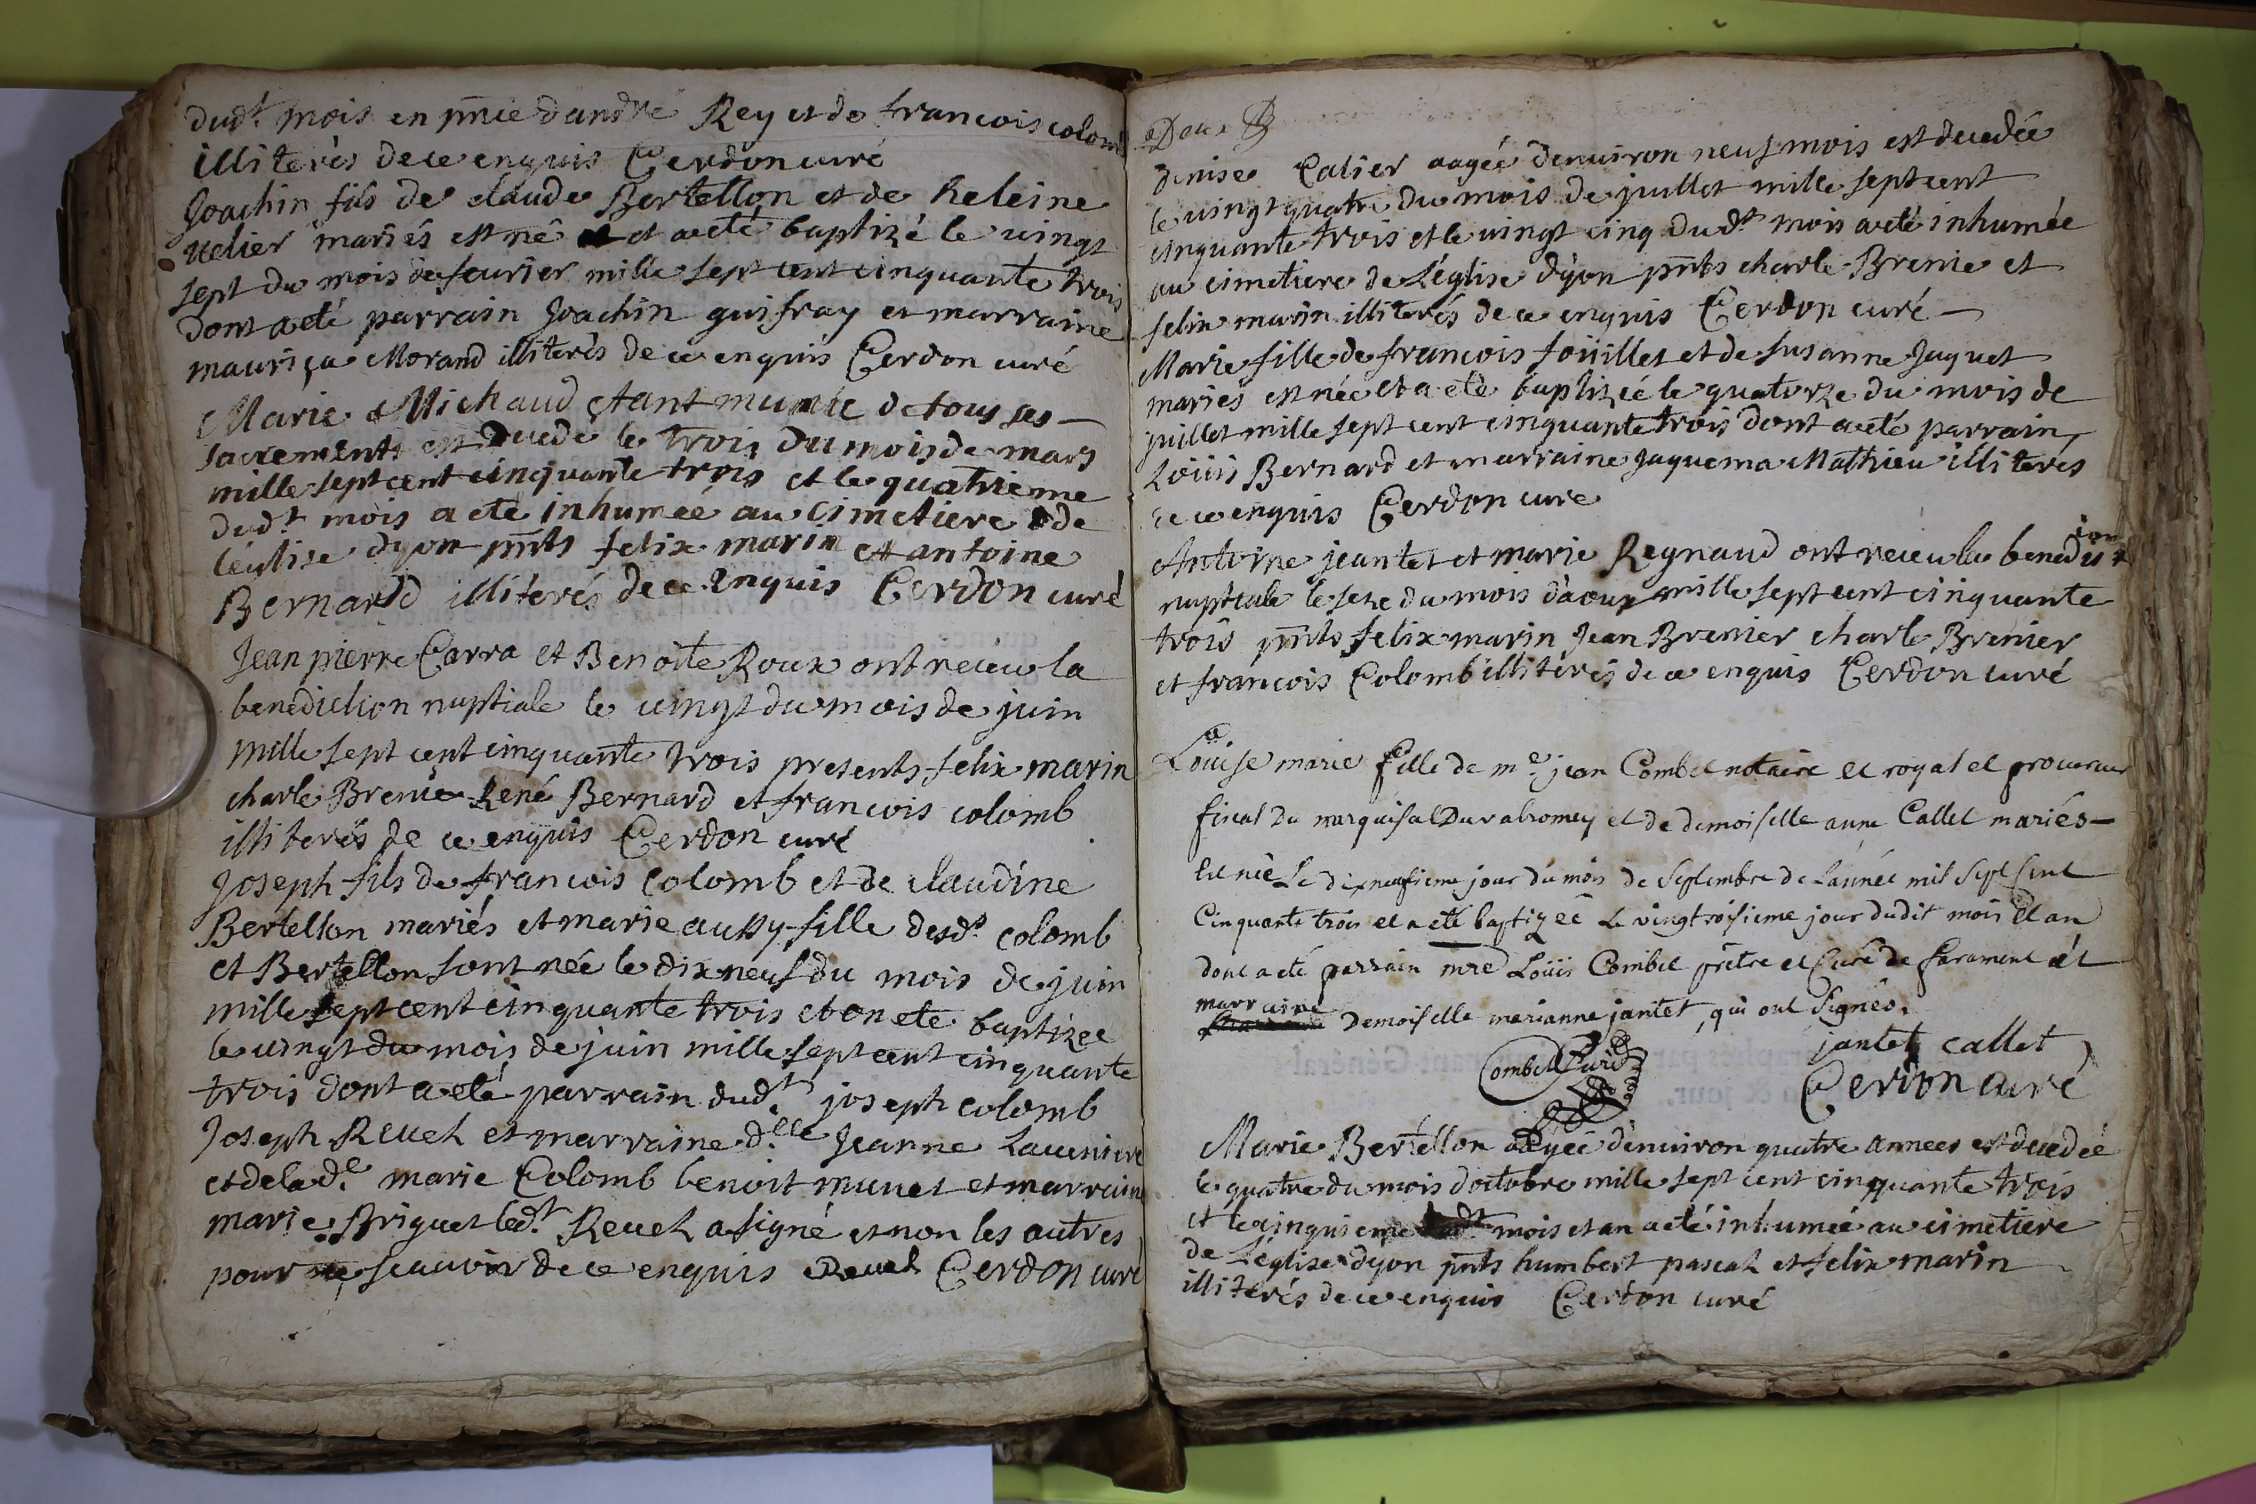 dudt mois en pnce dandré Rey et de francois colomb
illiterés de ce enquis Cerdon curé
Joachin fils de claude Bertellon et de heleine
uelier mariés est né et a eté baptizé le uingt
sept du mois de feurier mille sept cent cinquante trois
dont a eté parrain Joachin guifray et marraine
mauriça Morand illiterés de ce enquis Cerdon curé
Marie Michaud etant munie de tous ses
sacrements est decedé le trois du mois de mars
mille sept cent cinquante trois et le quatrieme
dudt mois a eté inhumée au cimetiere de
léglise dyon pnts felix marin et antoine
Bernard illiterés de ce enquis Cerdon curé
Jean pierre Carra et Benoite Roux ont receu la
benediction nuptiale le uingt du mois de juin
mille sept cent cinquante trois presents felix marin
charle Brenie René Bernard et francois colomb
illiterés de ce enquis Cerdon curé
Joseph fils de francois colomb et de claudine
Bertellon mariés et marie aussy fille desds colomb
et Bertellon sont née le dix neuf du mois de juin
mille sept cent cinquante trois et on eté baptizee
le uingt du mois de juin mille sept cent cinquante
trois dont a eté parrain dudt joseph colomb
Joseph Reuel et marraine delle Jeanne Laueniere
et de lade marie Colomb benoit munet et marraine
marie Briguet ledt Reuel a signé et non les autres
pour ne scauoir de ce enquis Reuel Cerdon curé
denise Calier aagée denuiron neuf mois est decedée
le uingt quatre du mois de juillet mille sept cent
cinquante trois et le uingt cinq dudt mois a eté inhumée
au cimetiere de Léglise dyon pnts charle Brenie et
felix marin illiterés de ce enquis Cerdon curé
Marie fille de francois foüillet et de susanne Jaquet
mariés est née et a eté baptizée le quatorze du mois de
juillet mille sept cent cinquante trois dont a eté parrain
Loüis Bernard et marraine Jaquema Mathieu illiterés
de ce enquis Cerdon cure
Antoine jeantet et marie Regnaud ont receu la benediction
nuptiale le seze du mois daoux mille sept cent cinquante
trois pnts felix marin Jean Brenier charle Brenier
et francois Colomb illiterés de ce enquis Cerdon curé
Loüise marie fille de me jean Combet notaire et royal et procureur
fiscal du marquisat Duvalromey et de demoiselle anne Callet mariés
est née Le dixneufieme jour du mois de Septembre de Lannée mil Sept Cent
Cinquante trois et a eté baptizée Le vingtroisieme jour dudit mois et an
dont a eté parrain mre Loüis Combet prêtre et Curé de faramens et
marraine Demoiselle marianne jantet, qui ont Signés.
jantet callet
Combet Curé
Cerdon curé
Marie Bertellon aagée denuiron quatre annees est decedée
le quatre du mois doctobre mille sept cent cinquante trois
et le cinquieme dudt mois et an a eté inhumée au cimetiere
de Léglise dyon pnts humbert pascal et felix marin
illiterés de ce enquis Cerdon curé